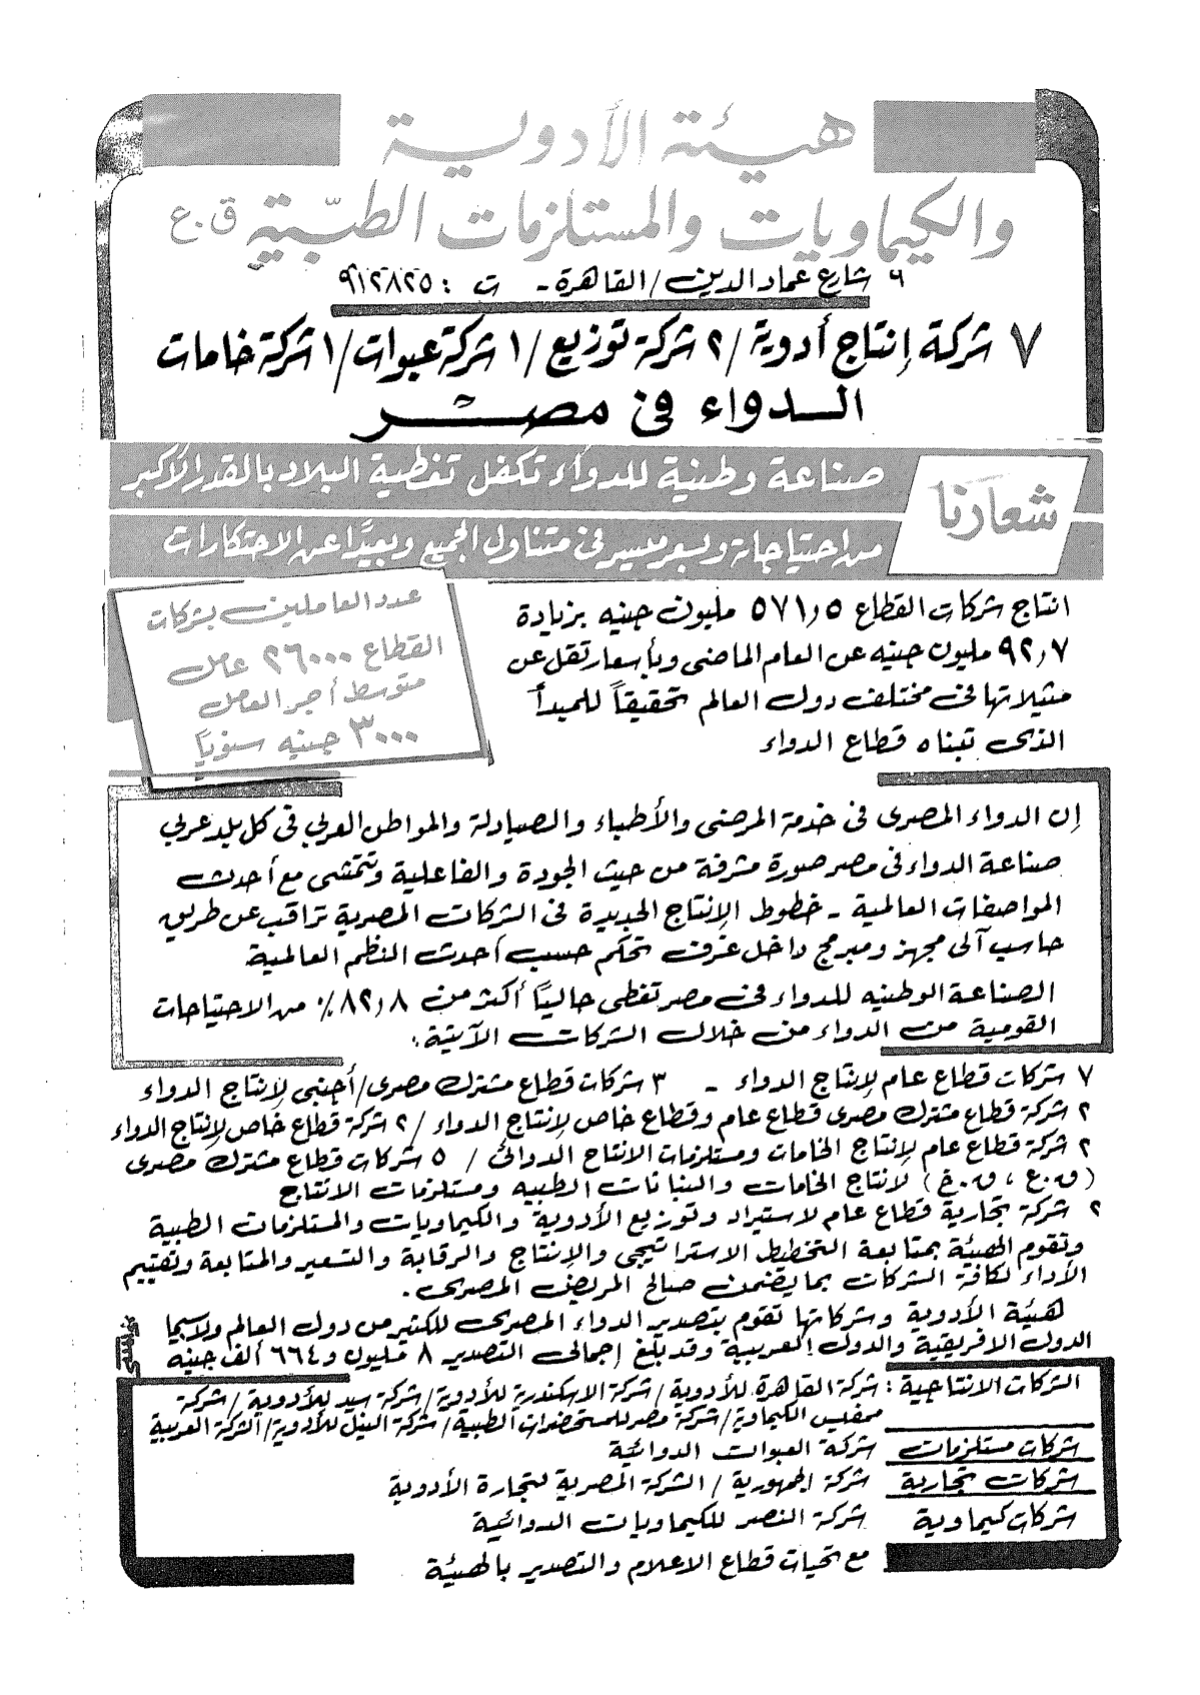 هيئة الأدوية
والكيماويات والمستلزمات الطبّية ق.ع
٦ شارع عماد الدين / القاهرة - ت : ٩١٢٨٢٥
٧ شركة إنتاج أدوية / ٢ شركة توزيع / ١ شركة عبوات / ١ شركة خامات
الدواء فى مصر
شعارنا
صناعة وطنية للدواء تكفل تغطية البلاد بالقدر الأكبر
من احتياجاته وبسعر ميسر فى متناول الجميع وبعيدًا عن الاحتكارات
انتاج شركات القطاع ٥٧١٫٥ مليون جنيه بزيادة
٩٢٫٧ مليون جنيه عن العام الماضى وبأسعار تقل عن
مثيلاتها فى مختلف دول العالم تحقيقاً للمبدأ
الذى تبناه قطاع الدواء
عدد العاملين بشركات
القطاع ٢٦٠٠٠ عامل
متوسط أجر العامل
٣٠٠٠ جنيه سنوياً
إن الدواء المصرى فى خدمة المرضى والأطباء والصيادلة والمواطن العربى فى كل بلد عربى
صناعة الدواء فى مصر صورة مشرفة من حيث الجودة والفاعلية وتتمشى مع أحدث
المواصفات العالمية - خطوط الإنتاج الجديدة فى الشركات المصرية تراقب عن طريق
حاسب آلى مجهز ومبرمج داخل غرف تحكم حسب أحدث النظم العالمية
الصناعة الوطنيه للدواء فى مصر تغطى حالياً أكثر من ٨٢٫٨ ٪ من الاحتياجات
القومية من الدواء من خلال الشركات الآتية :
٧ شركات قطاع عام لإنتاج الدواء - ٣ شركات قطاع مشترك مصرى / أجنبى لإنتاج الدواء
٢ شركة قطاع مشترك مصرى قطاع عام وقطاع خاص لإنتاج الدواء / ٢ شركة قطاع خاص لإنتاج الدواء
٢ شركة قطاع عام لإنتاج الخامات ومستلزمات الانتاج الدوائى / ٥ شركات قطاع مشترك مصرى
( ق.ع ، ق.خ ) لانتاج الخامات والنباتات الطبيه ومستلزمات الانتاج
٢ شركة تجارية قطاع عام لاستيراد وتوزيع الأدوية والكيماويات والمستلزمات الطبية
وتقوم الهيئة بمتابعة التخطيط الاستراتيجى والإنتاج والرقابة والتسعير والمتابعة وتقييم
الأداء لكافة الشركات بما يضمن صالح المريض المصرى .
هيئة الأدوية وشركاتها تقوم بتصدير الدواء المصرى للكثير من دول العالم ولاسيما
الدول الافريقية والدول العربية وقد بلغ إجمالى التصدير ٨ مليون و ٦٦٤ ألف جنيه
الشركات الانتاجية : شركة القاهرة للأدوية / شركة الاسكندرية للأدوية / شركة سيد للأدوية / شركة
ممفيس الكيماوية / شركة مصر للمستحضرات الطبية / شركة النيل للأدوية / الشركة العربية
شركات مستلزمات شركة العبوات الدوائية
شركات تجارية شركة الجمهورية / الشركة المصرية لتجارة الأدوية
شركات كيماوية شركة النصر للكيماويات الدوائية
مع تحيات قطاع الاعلام والتصدير بالهيئة